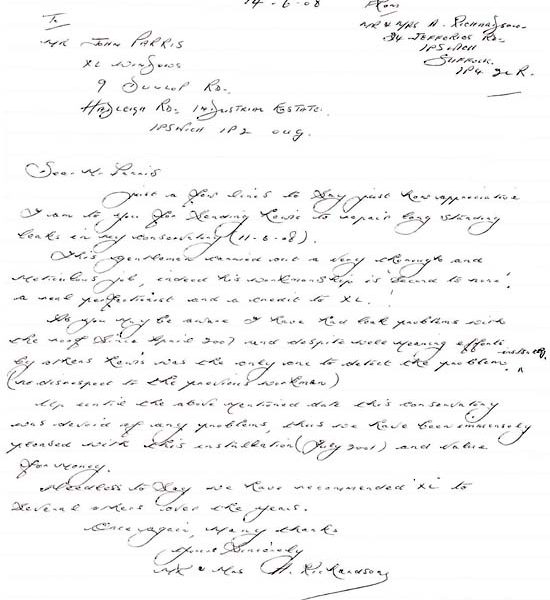 14-6-08
From
MR & MRS A. RICHARDSON
34 JEFFERIES RD.
IPSWICH
SUFFOLK.
IP4
To
MR JOHN PARRIS
XL WINDOWS
9 DUNLOP RD.
HADLEIGH RD. INDUSTRIAL ESTATE.
IPSWICH IP2 OUG.
Dear Mr Parris
Just a few lines to say just how appreciative
I am to you for sending Kevis to repair long standing
leaks in my conservatory (11-6-08).
This gentleman carried out a very thorough and
meticulous job, indeed his workmanship is 'second to none',
a real perfectionist and a credit to XL!
As you may be aware I have had leak problems with
the roof since April 2007 and despite well meaning efforts
by others Kevis was the only one to detect the problem instantly,
(no disrespect to the previous workmen)
Up until the above mentioned date this conservatory
was devoid of any problems, thus we have been immensely
pleased with this installation (July 2001) and value
for money.
Needless to say we have recommended 'XL' to
several others over the years.
Once again, many thanks
Yours Sincerely
MR & Mrs A. Richardson